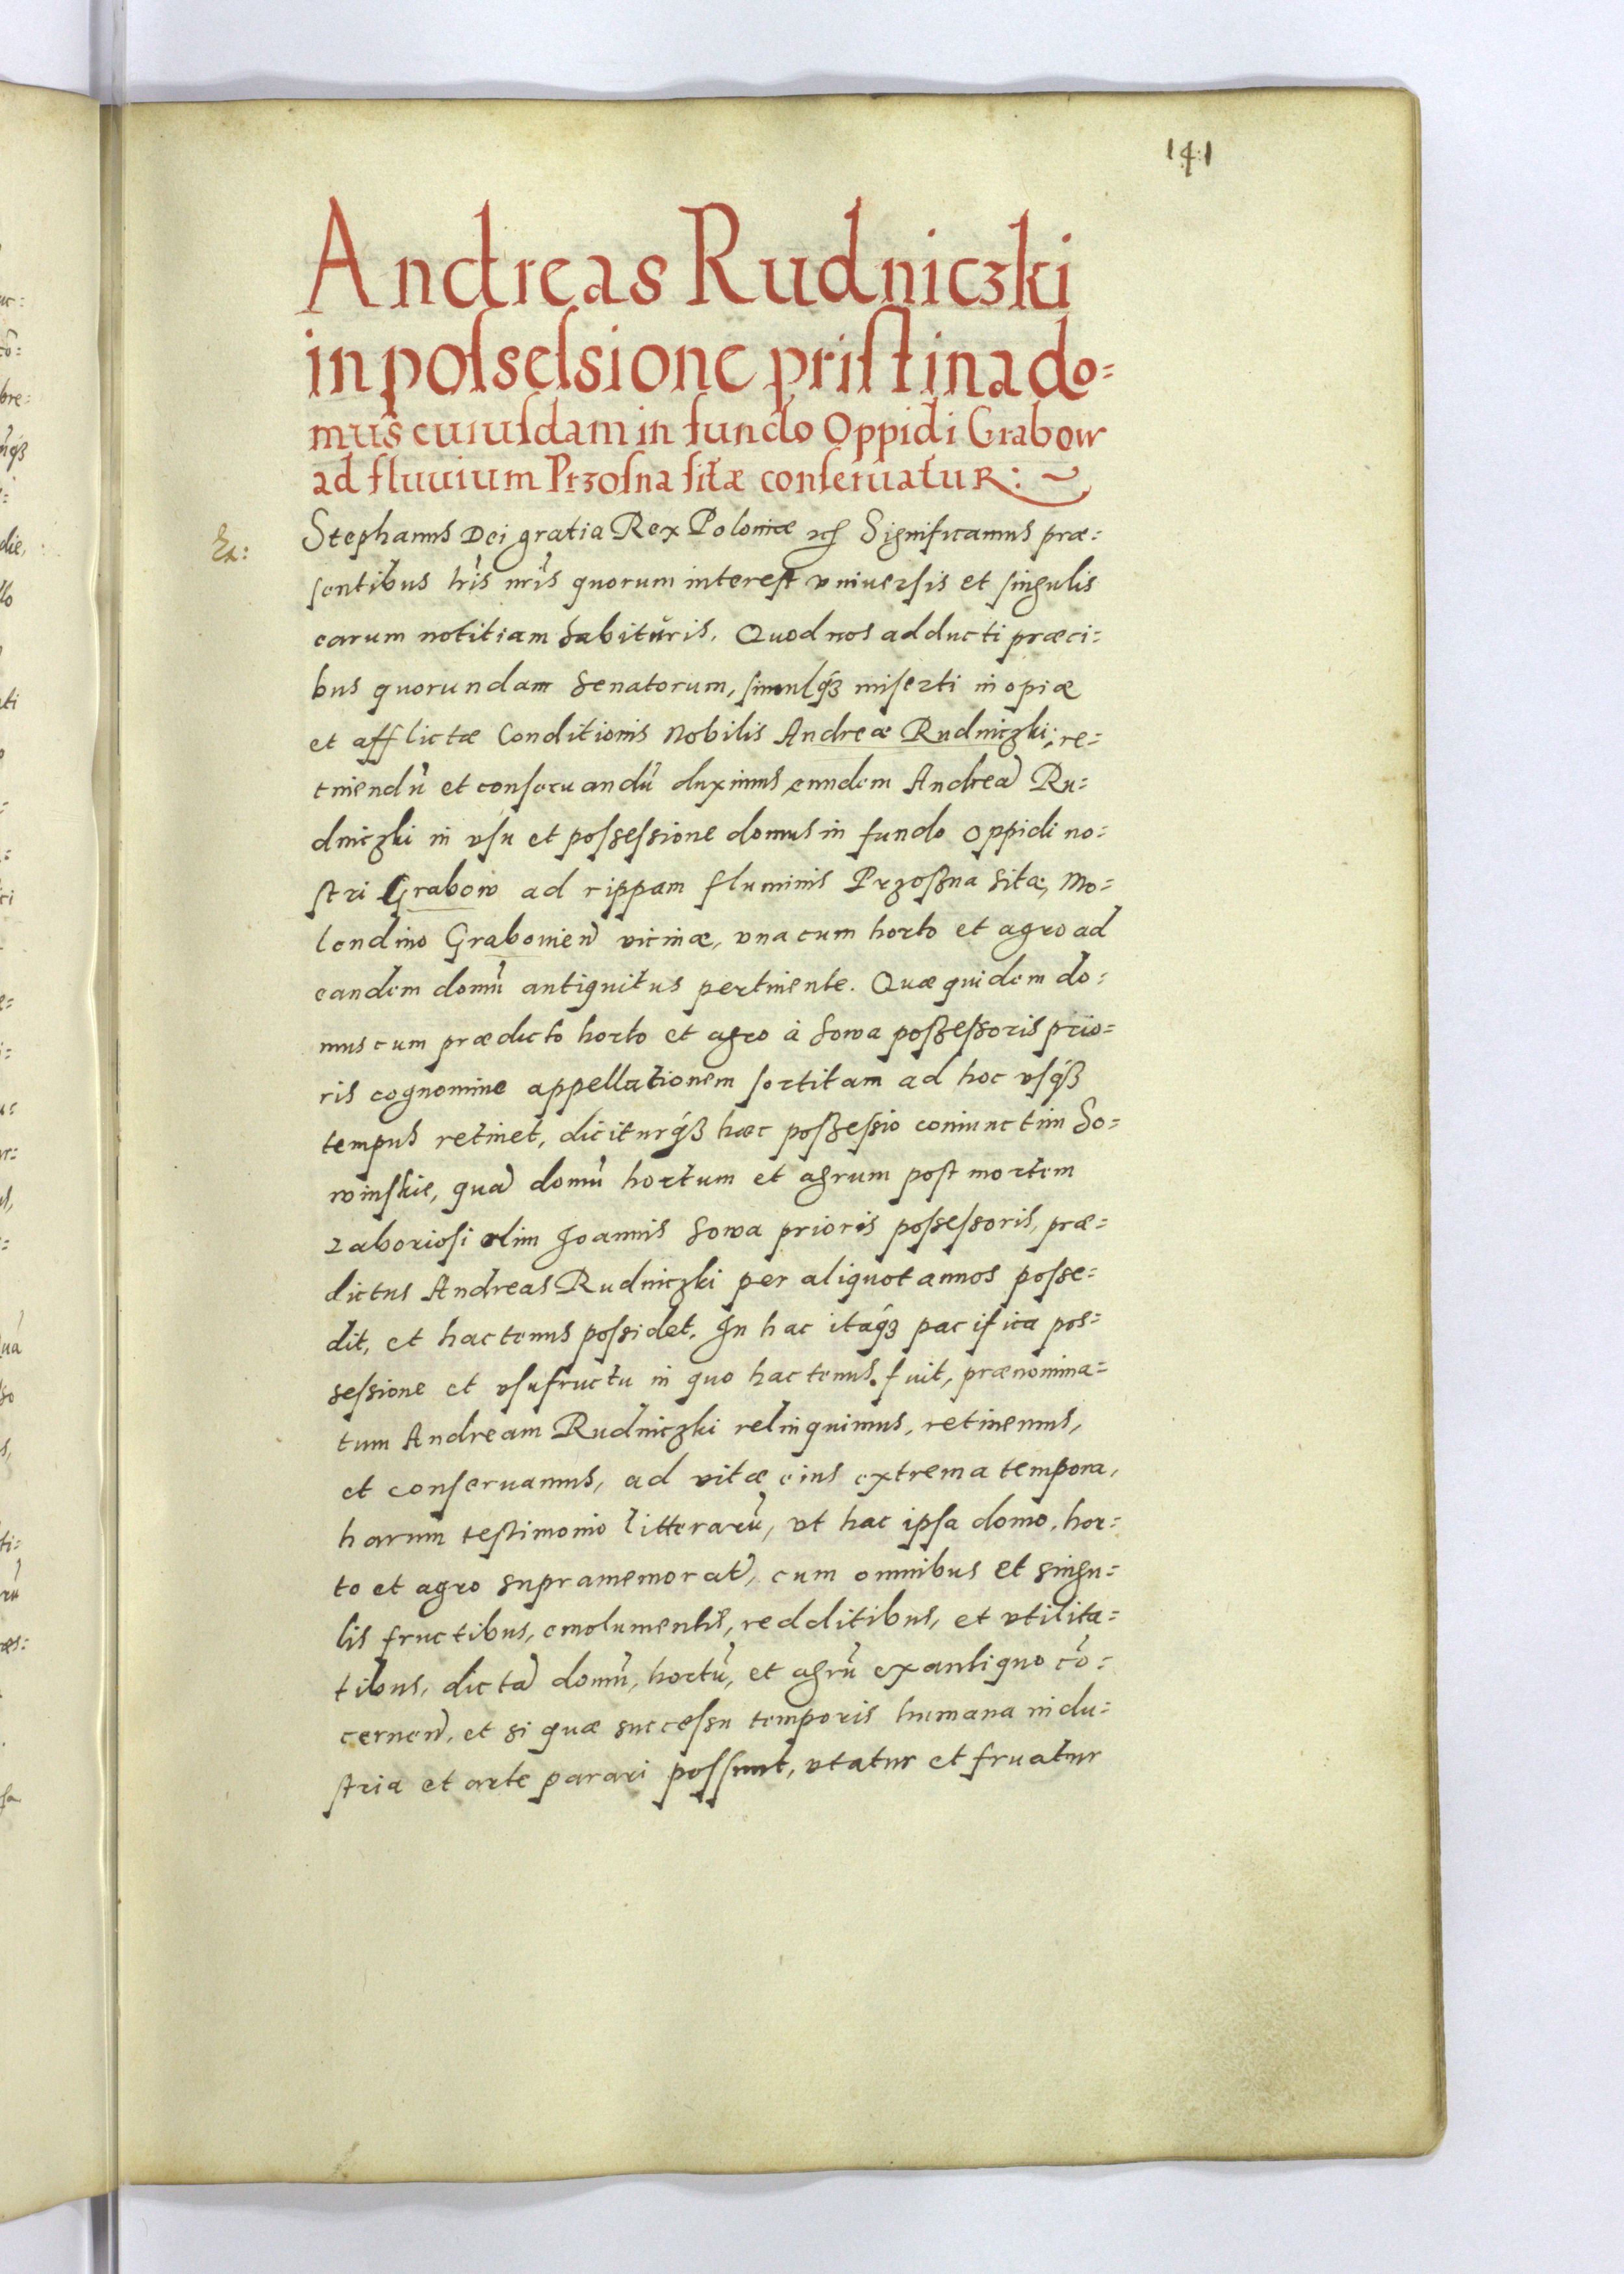 141
Andreas Rudniczki
in poſseſsione priſtina do=
mus cuiuſdam in fundo Oppidi Grabow
ad fluuium Przoſna ſitæ conſeruatur:
Ex:
Stephanus Dei gratia Rex Poloniæ Significamus præ=
ſentibus lris nris quorum intereſt vniuerſis et ſingulis
earum notitiam habituris. Quod nos adducti præci=
bus quorundam Senatorum, ſimulq́ꝫ miſerti inopiæ
et afflictæ Conditionis Nobilis Andreæ Rudniczki, re=
tinendū et conſeruandū duximus, eundem Andreā Ru=
dniczki in vſu et poſseſsione domus in fundo oppidi no=
ſtri Grabow ad rippam fluminis Przoßna Sitæ, Mo=
lendino Grabouien̄ vicinæ, vna cum horto et agro ad
eandem domū antiquitus pertinente. Quæ quidem do=
mus cum prædicto horto et agro à Sowa poßeßoris prio=
ris cognomine appellationem ſortitam ad hoc vſq́ꝫ
tempus retinet, diciturq́ꝫ hæc poßeſsio coniunctim So=
winſkie, quā domū hortum et agrum poſt mortem
Laborioſi olim Joannis Sowa prioris poſseſsoris, præ=
dictus Andreas Rudniczki per aliquot annos poſse=
dit, et hactenus poſsidet. In hac itaq́ꝫ pacifica pos=
seſsione et vſufructu in quo hactenus fuit, prænomina=
tum Andream Rudniczki relinquimus, retinemus,
et conſeruamus, ad vitæ eius extrema tempora,
harum teſtimonio litterarū, vt hac ipſa domo, hor=
to et agro supramemorat̄, cum omnibus et singu=
lis fructibus, emolumentis, redditibus, et vtilita=
tibus, dictā domū, hortū, et agrū ex antiquo cō=
cernen̄, et si quæ succeſsu temporis humana indu=
ſtria et arte parari poſſunt, vtatur et fruatur